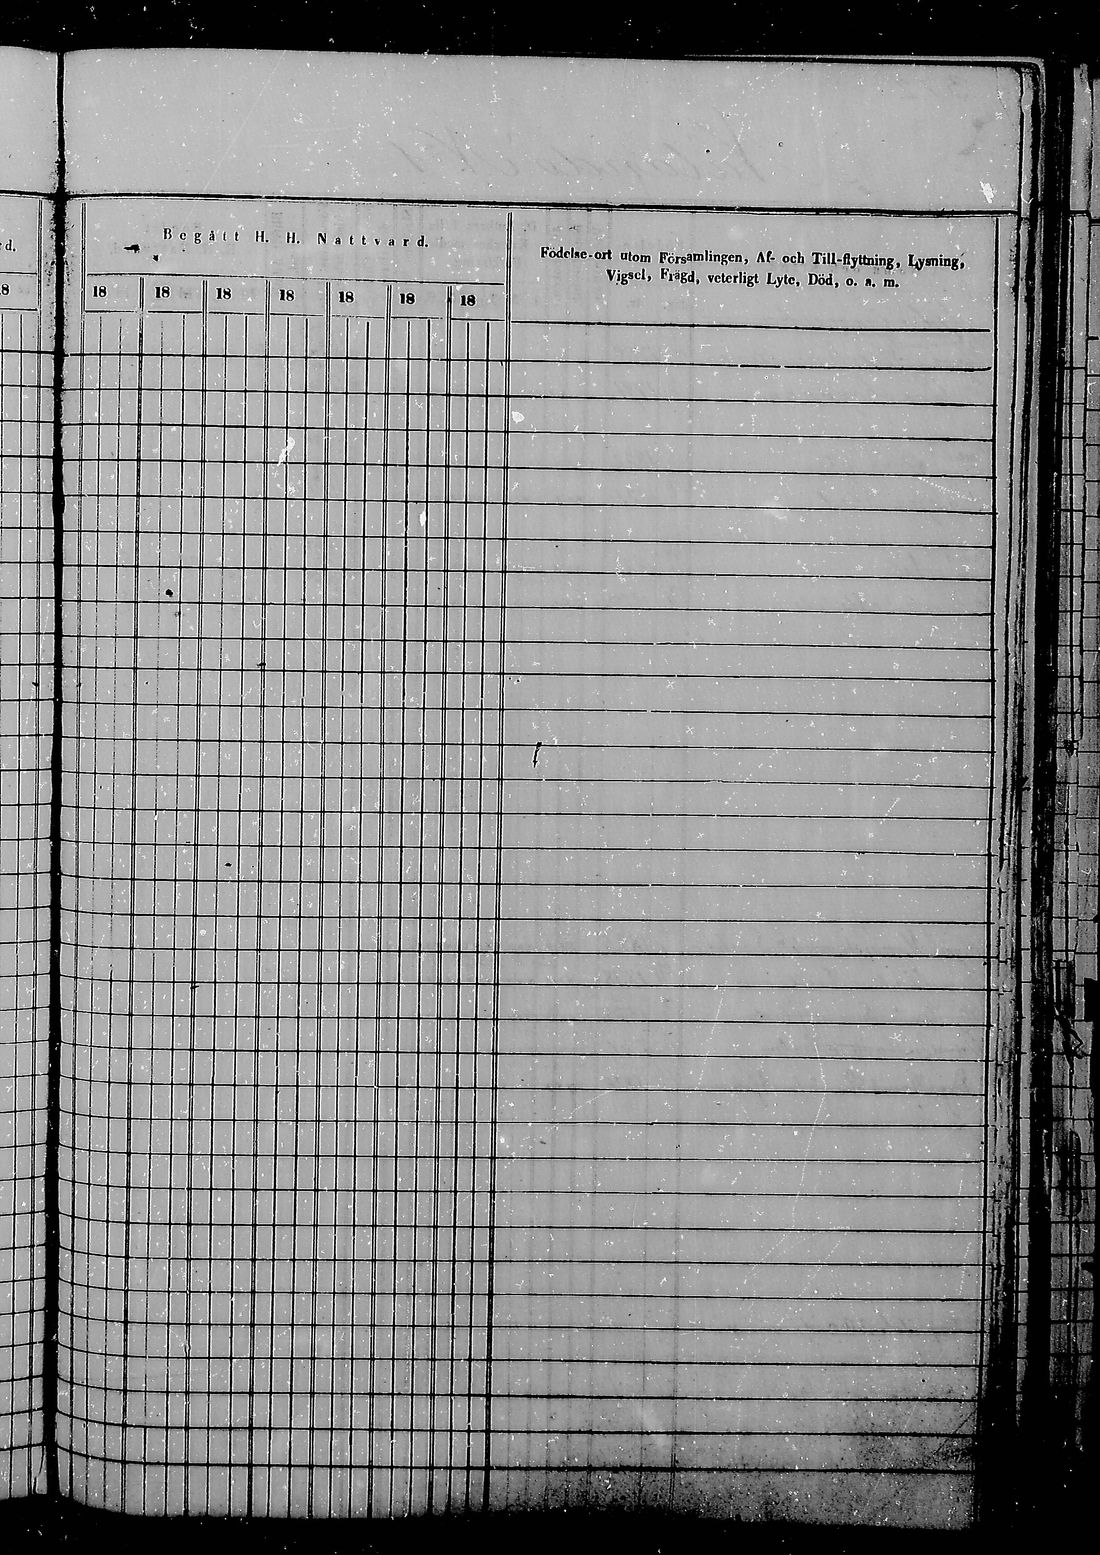 rd.
18
Begått H. H. Nattvard.
18 18 18 18 18 18 18
Födelse-ort utom Församlingen, Af- och Till-flyttning, Lysning,
Vigsel, Frägd, veterligt Lyte, Död, o. s. m.